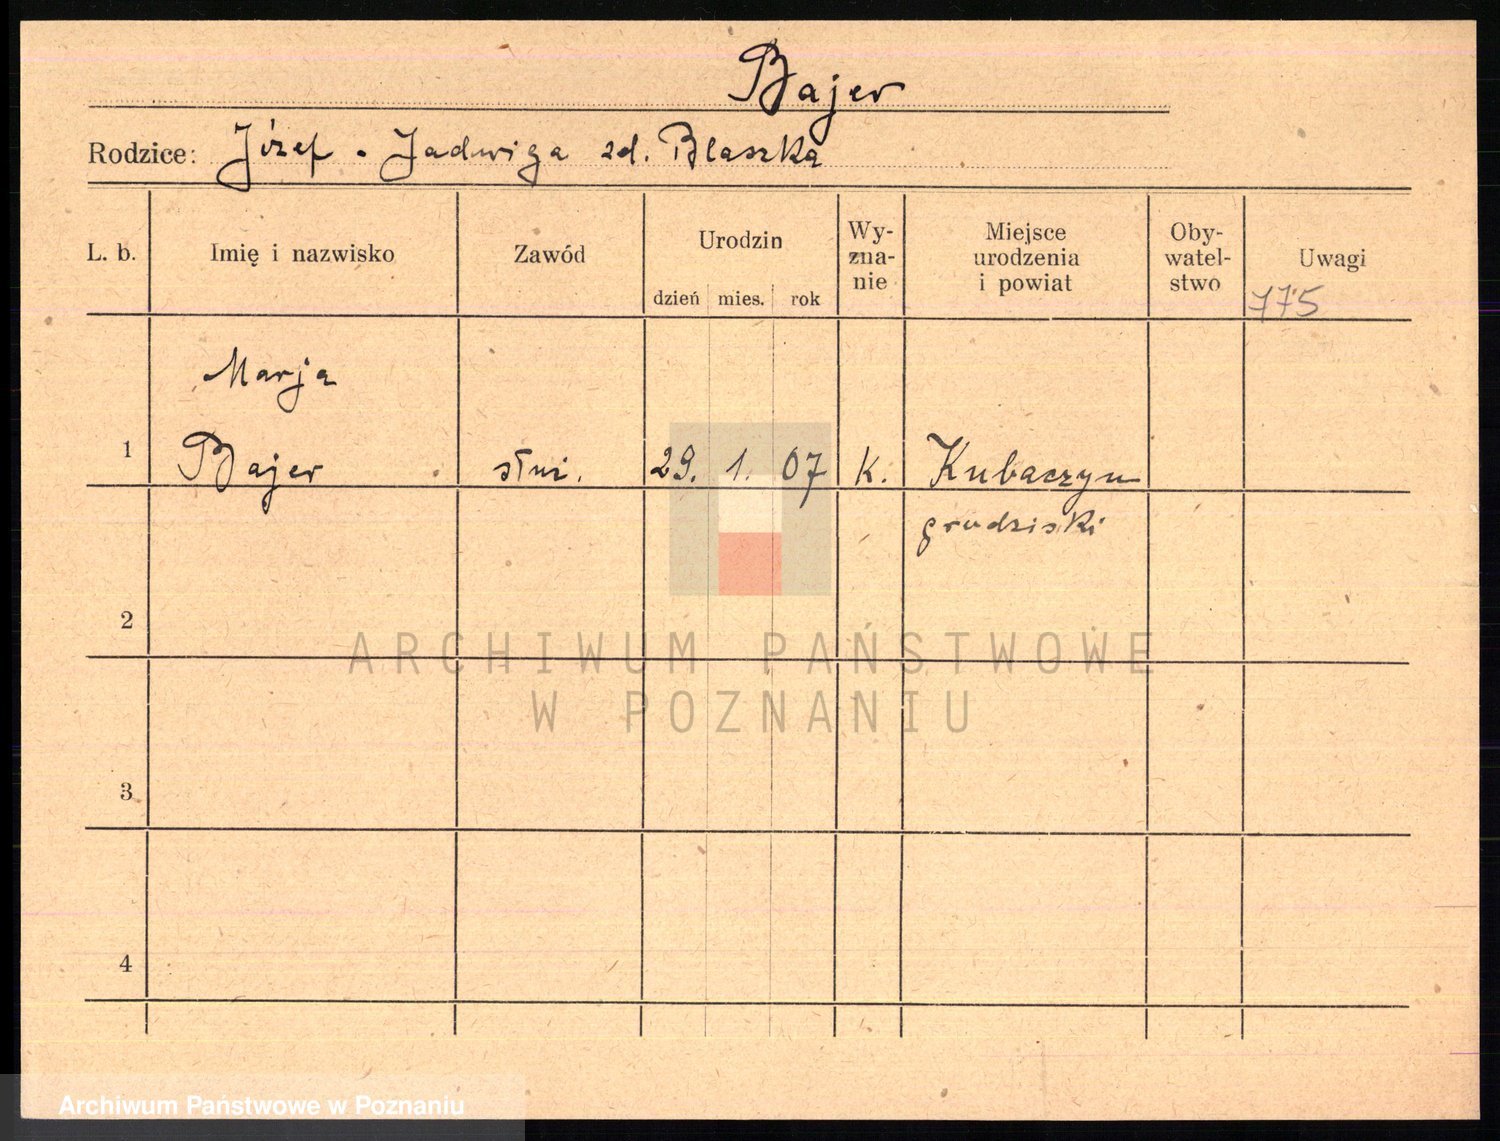 Bajer
Rodzice: Józef - Jadwiga zd. Blaszka
L. b. Imię i nazwisko Zawód Urodzin dzień mies. rok Wy-zna-nie Miejsce urodzenia i powiat Oby-watel-stwo Uwagi
775
Marja
1 Bajer słui. 29. 1. 07 k. Kubaczyn
grodziski
2
ARCHIWUM PAŃSTWOWE
W POZNANIU
3
4
Archiwum Państwowe w Poznaniu